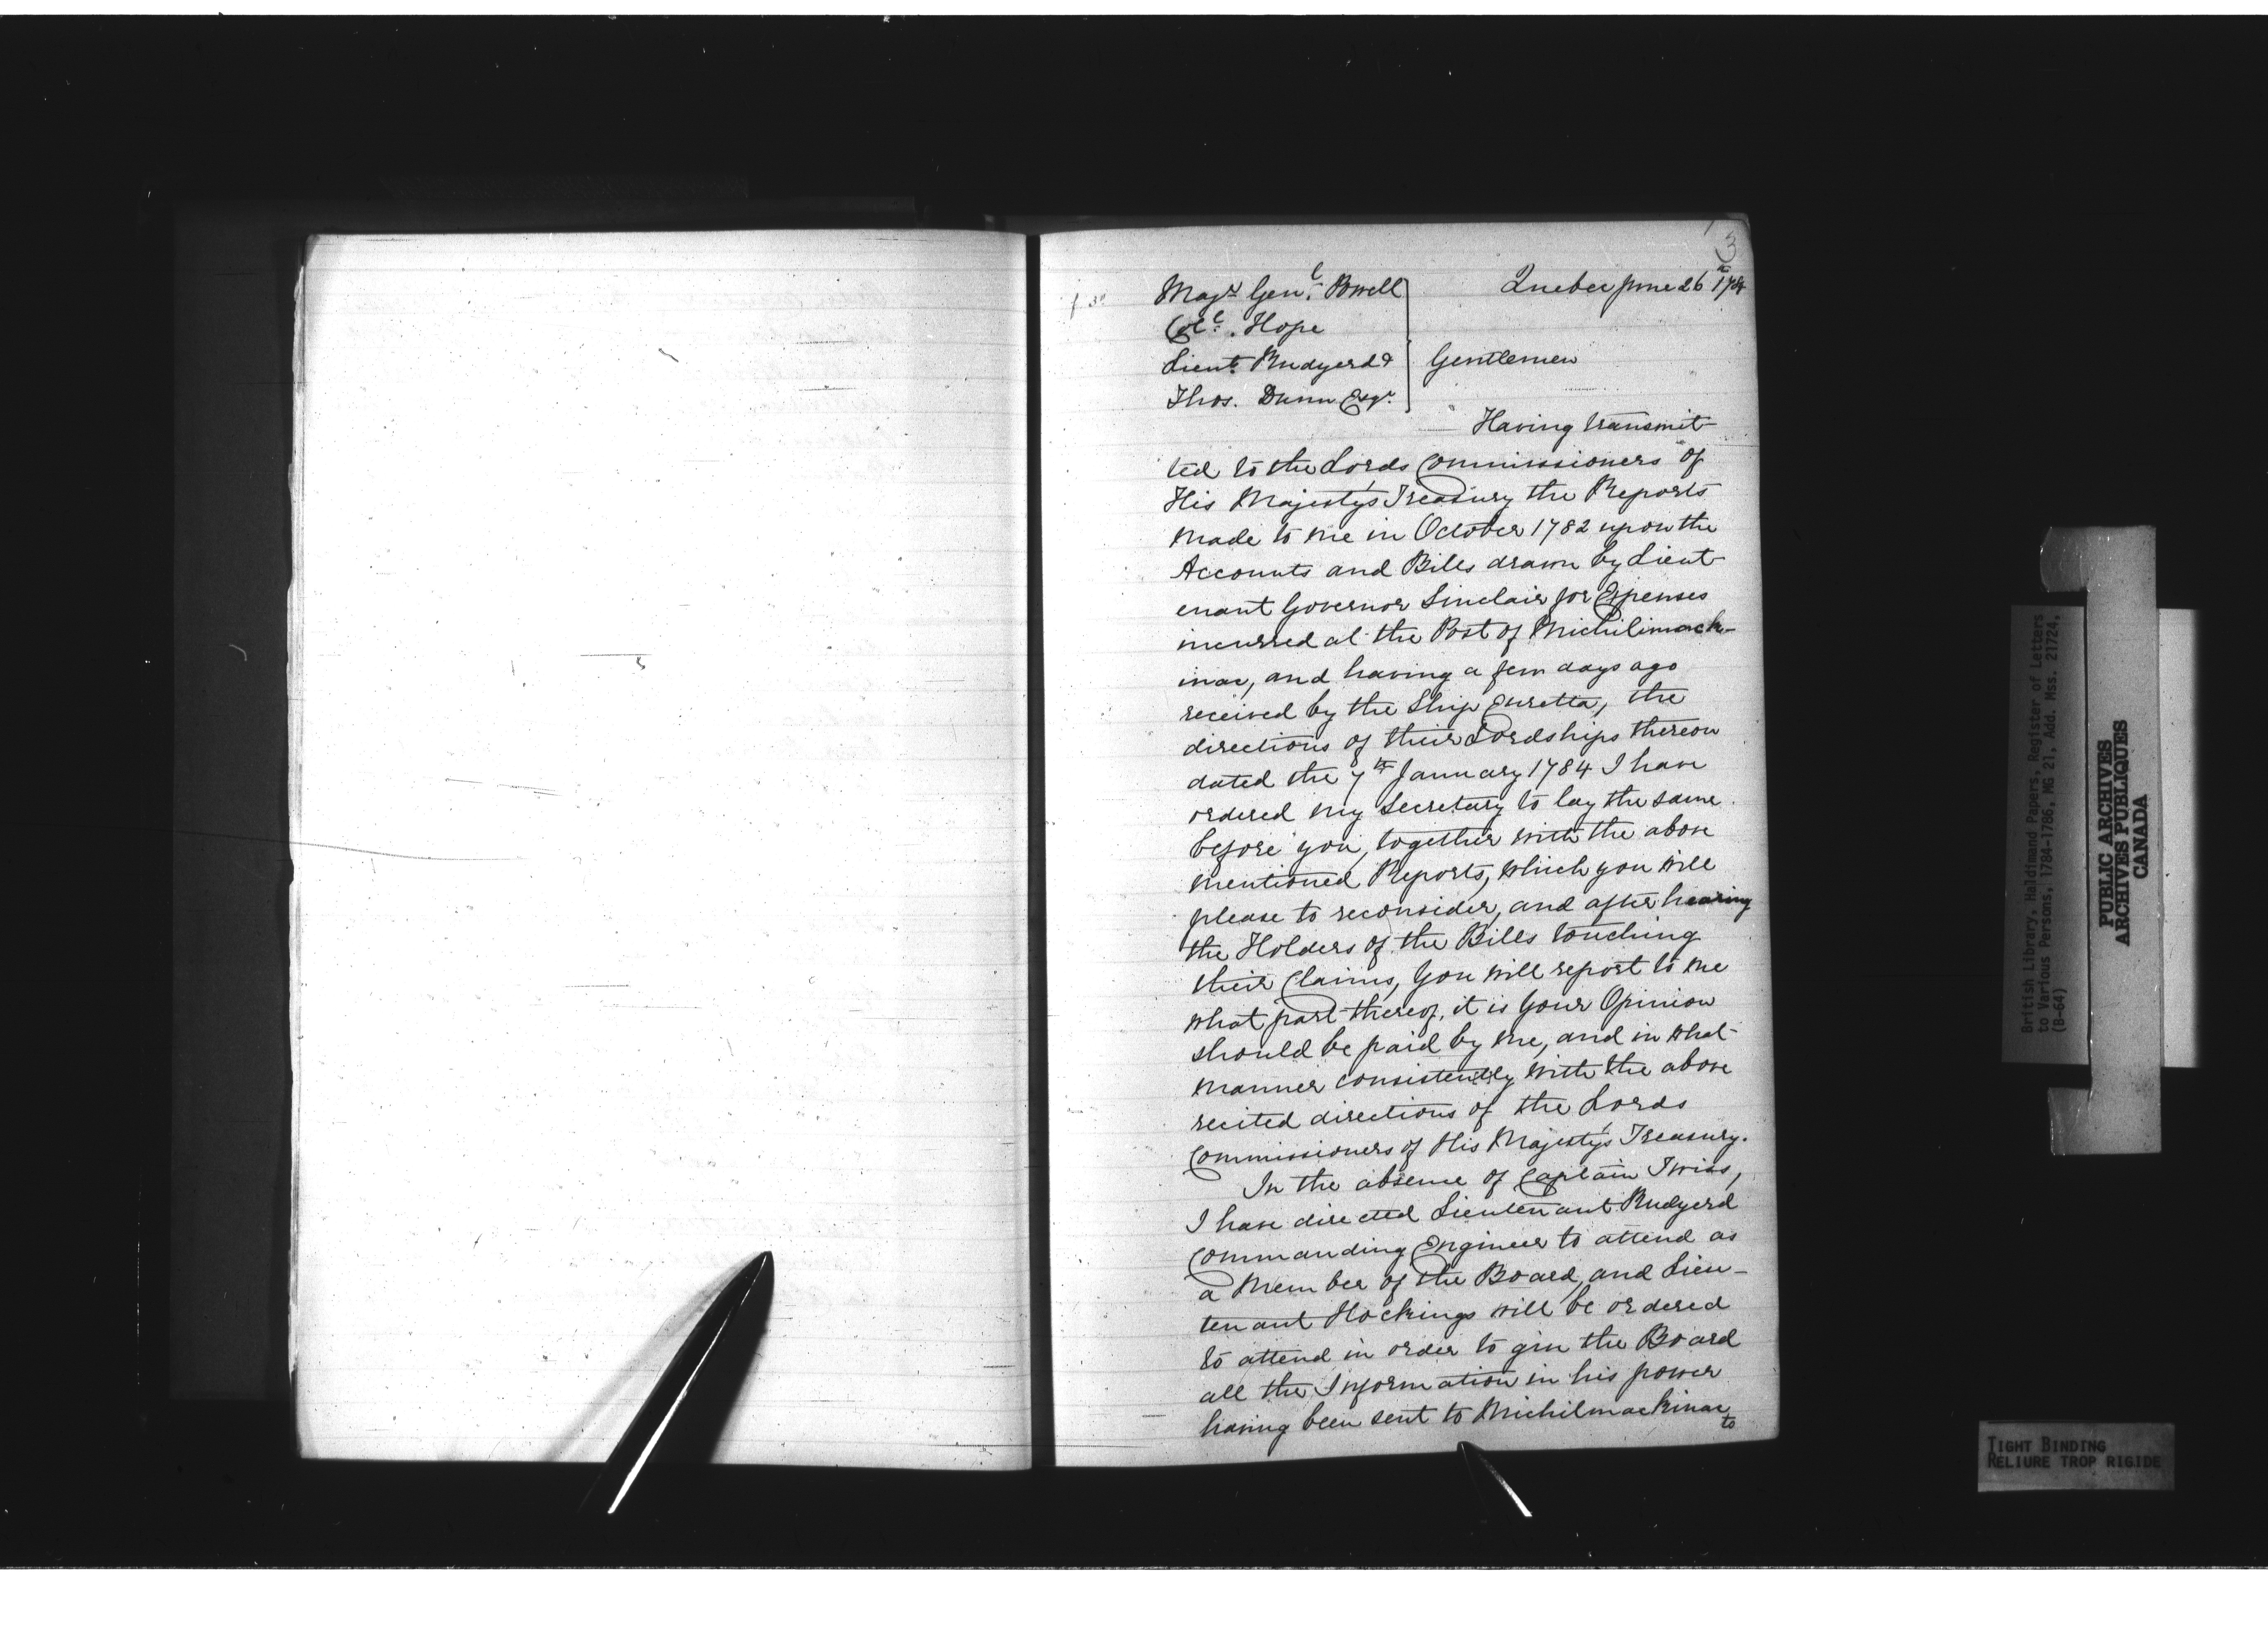 3
Majr. Genl. Powell
Quebec June 26th 1784
Coll. Hope
Lieut. Rudyerd &
Gentlemen
Thos. Dunn Esqr.
Having transmit-
ted to the Lords Commissioners of
His Majesty's Treasury the Reports
made to me in October 1782 upon the
Accounts and Bills drawn by Lieut-
enant Governor Sinclair for Expenses
incurred at the Post of Michilimack-
inac, and having a few days ago
received by the Ship Euretta, the
directions of their Lordships thereon
dated the 7th January 1784 I have
ordered my Secretary to lay the same
before you, together with the above
mentioned Reports, which you will
please to reconsider, and after hearing
the Holders of the Bills touching
their Claims, you will report to me
what part thereof, it is your Opinion
should be paid by me, and in what
manner consistently with the above
recited directions of the Lords
Commissioners of His Majesty's Treasury.
In the absence of Captain Twiss,
I have directed Lieutenant Rudyerd
Commanding Engineer to attend as
a Member of the Board, and Lieu-
tenant Hockings will be ordered
to attend in order to give the Board
all the Information in his power
having been sent to Michilmackinac
to
British Library, Haldimand Papers, Register of Letters
to Various Persons, 1784-1786, MG 21, Add. Mss. 21724,
(B-64)
PUBLIC ARCHIVES
ARCHIVES PUBLIQUES
CANADA
TIGHT BINDING
RELIURE TROP RIGIDE